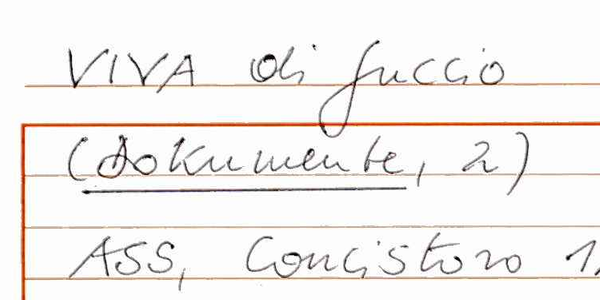 VIVA di guccio
(Dokumente, 2)
ASS, Concistoro